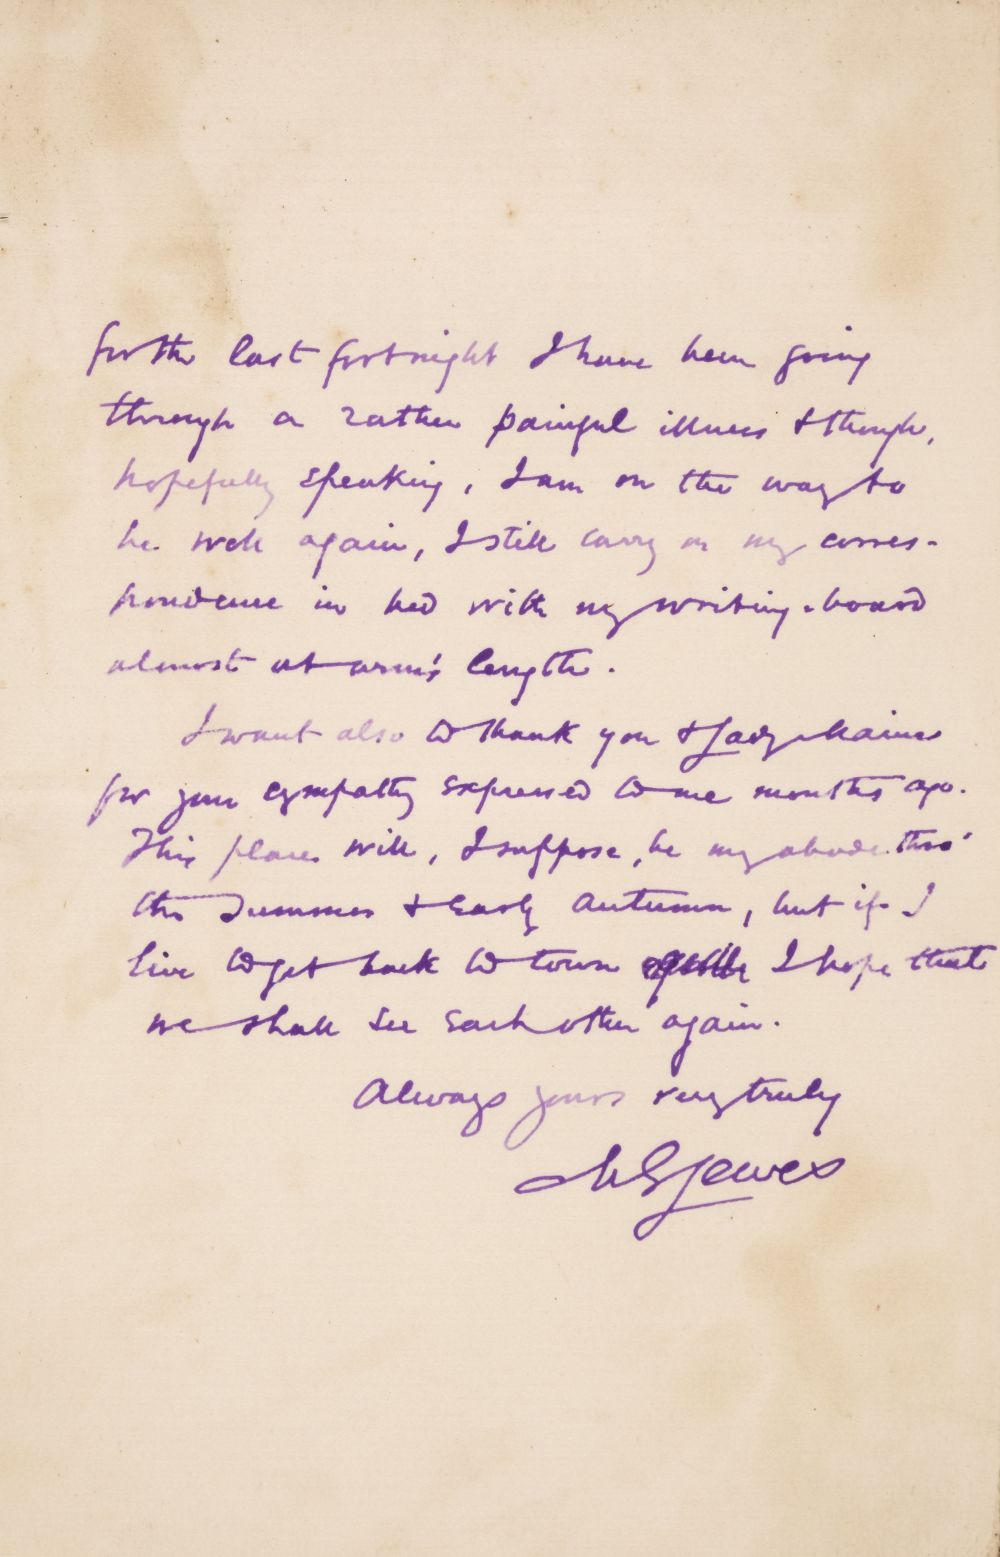 for the last fortnight I have been going
through a rather painful illness & though,
hopefully speaking, I am on the way to
be well again, I still carry on my corres-
pondence in bed with my writing-board
almost at arm's length.
I want also to thank you & Lady Maine
for your sympathy expressed to me months ago.
This place will, I suppose, be my abode thro'
the Summer & early Autumn, but if I
live to get back to town I hope that
we shall see each other again.
Always yours very truly
M E Lewes